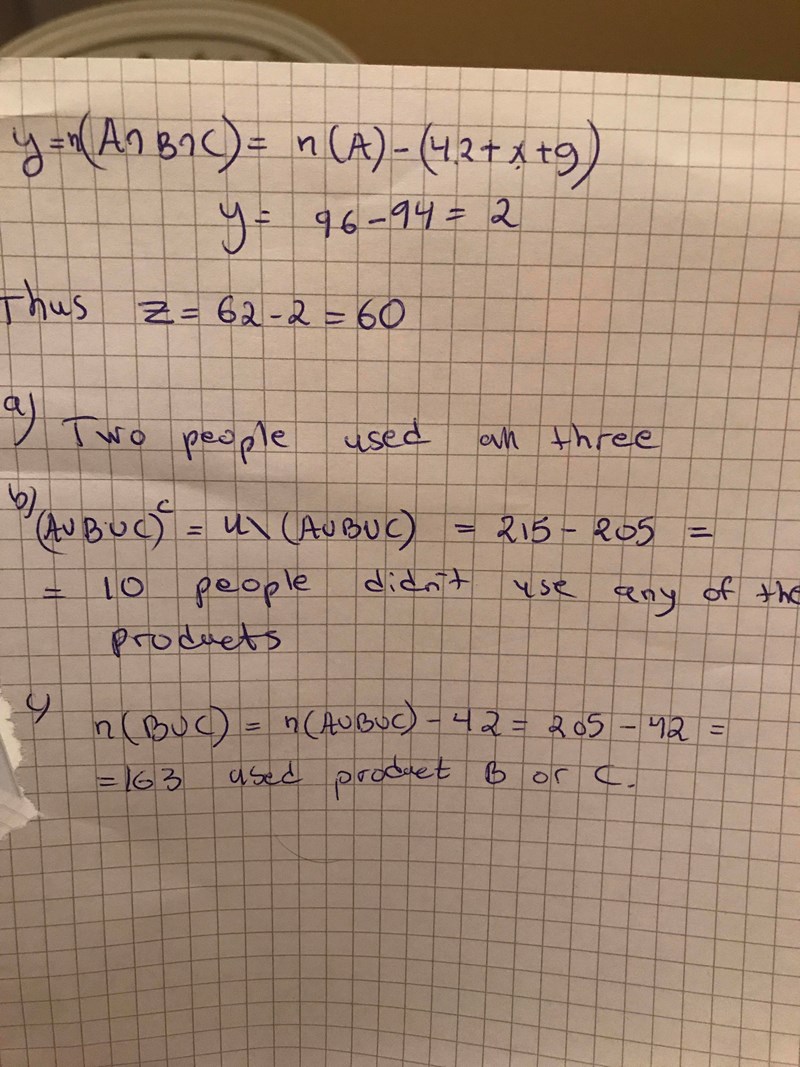 y=n(A∩B∩C)= n(A)-(42+x+9)
y= 96-94= 2
Thus z= 62-2=60
a) Two people used all three
b) (A∪B∪C)ᶜ = U\ (A∪B∪C) = 215- 205 =
= 10 people didn't use any of the
products
c) n(B∪C) = n(A∪B∪C) - 42 = 205 - 42 =
=163 used product B or C.